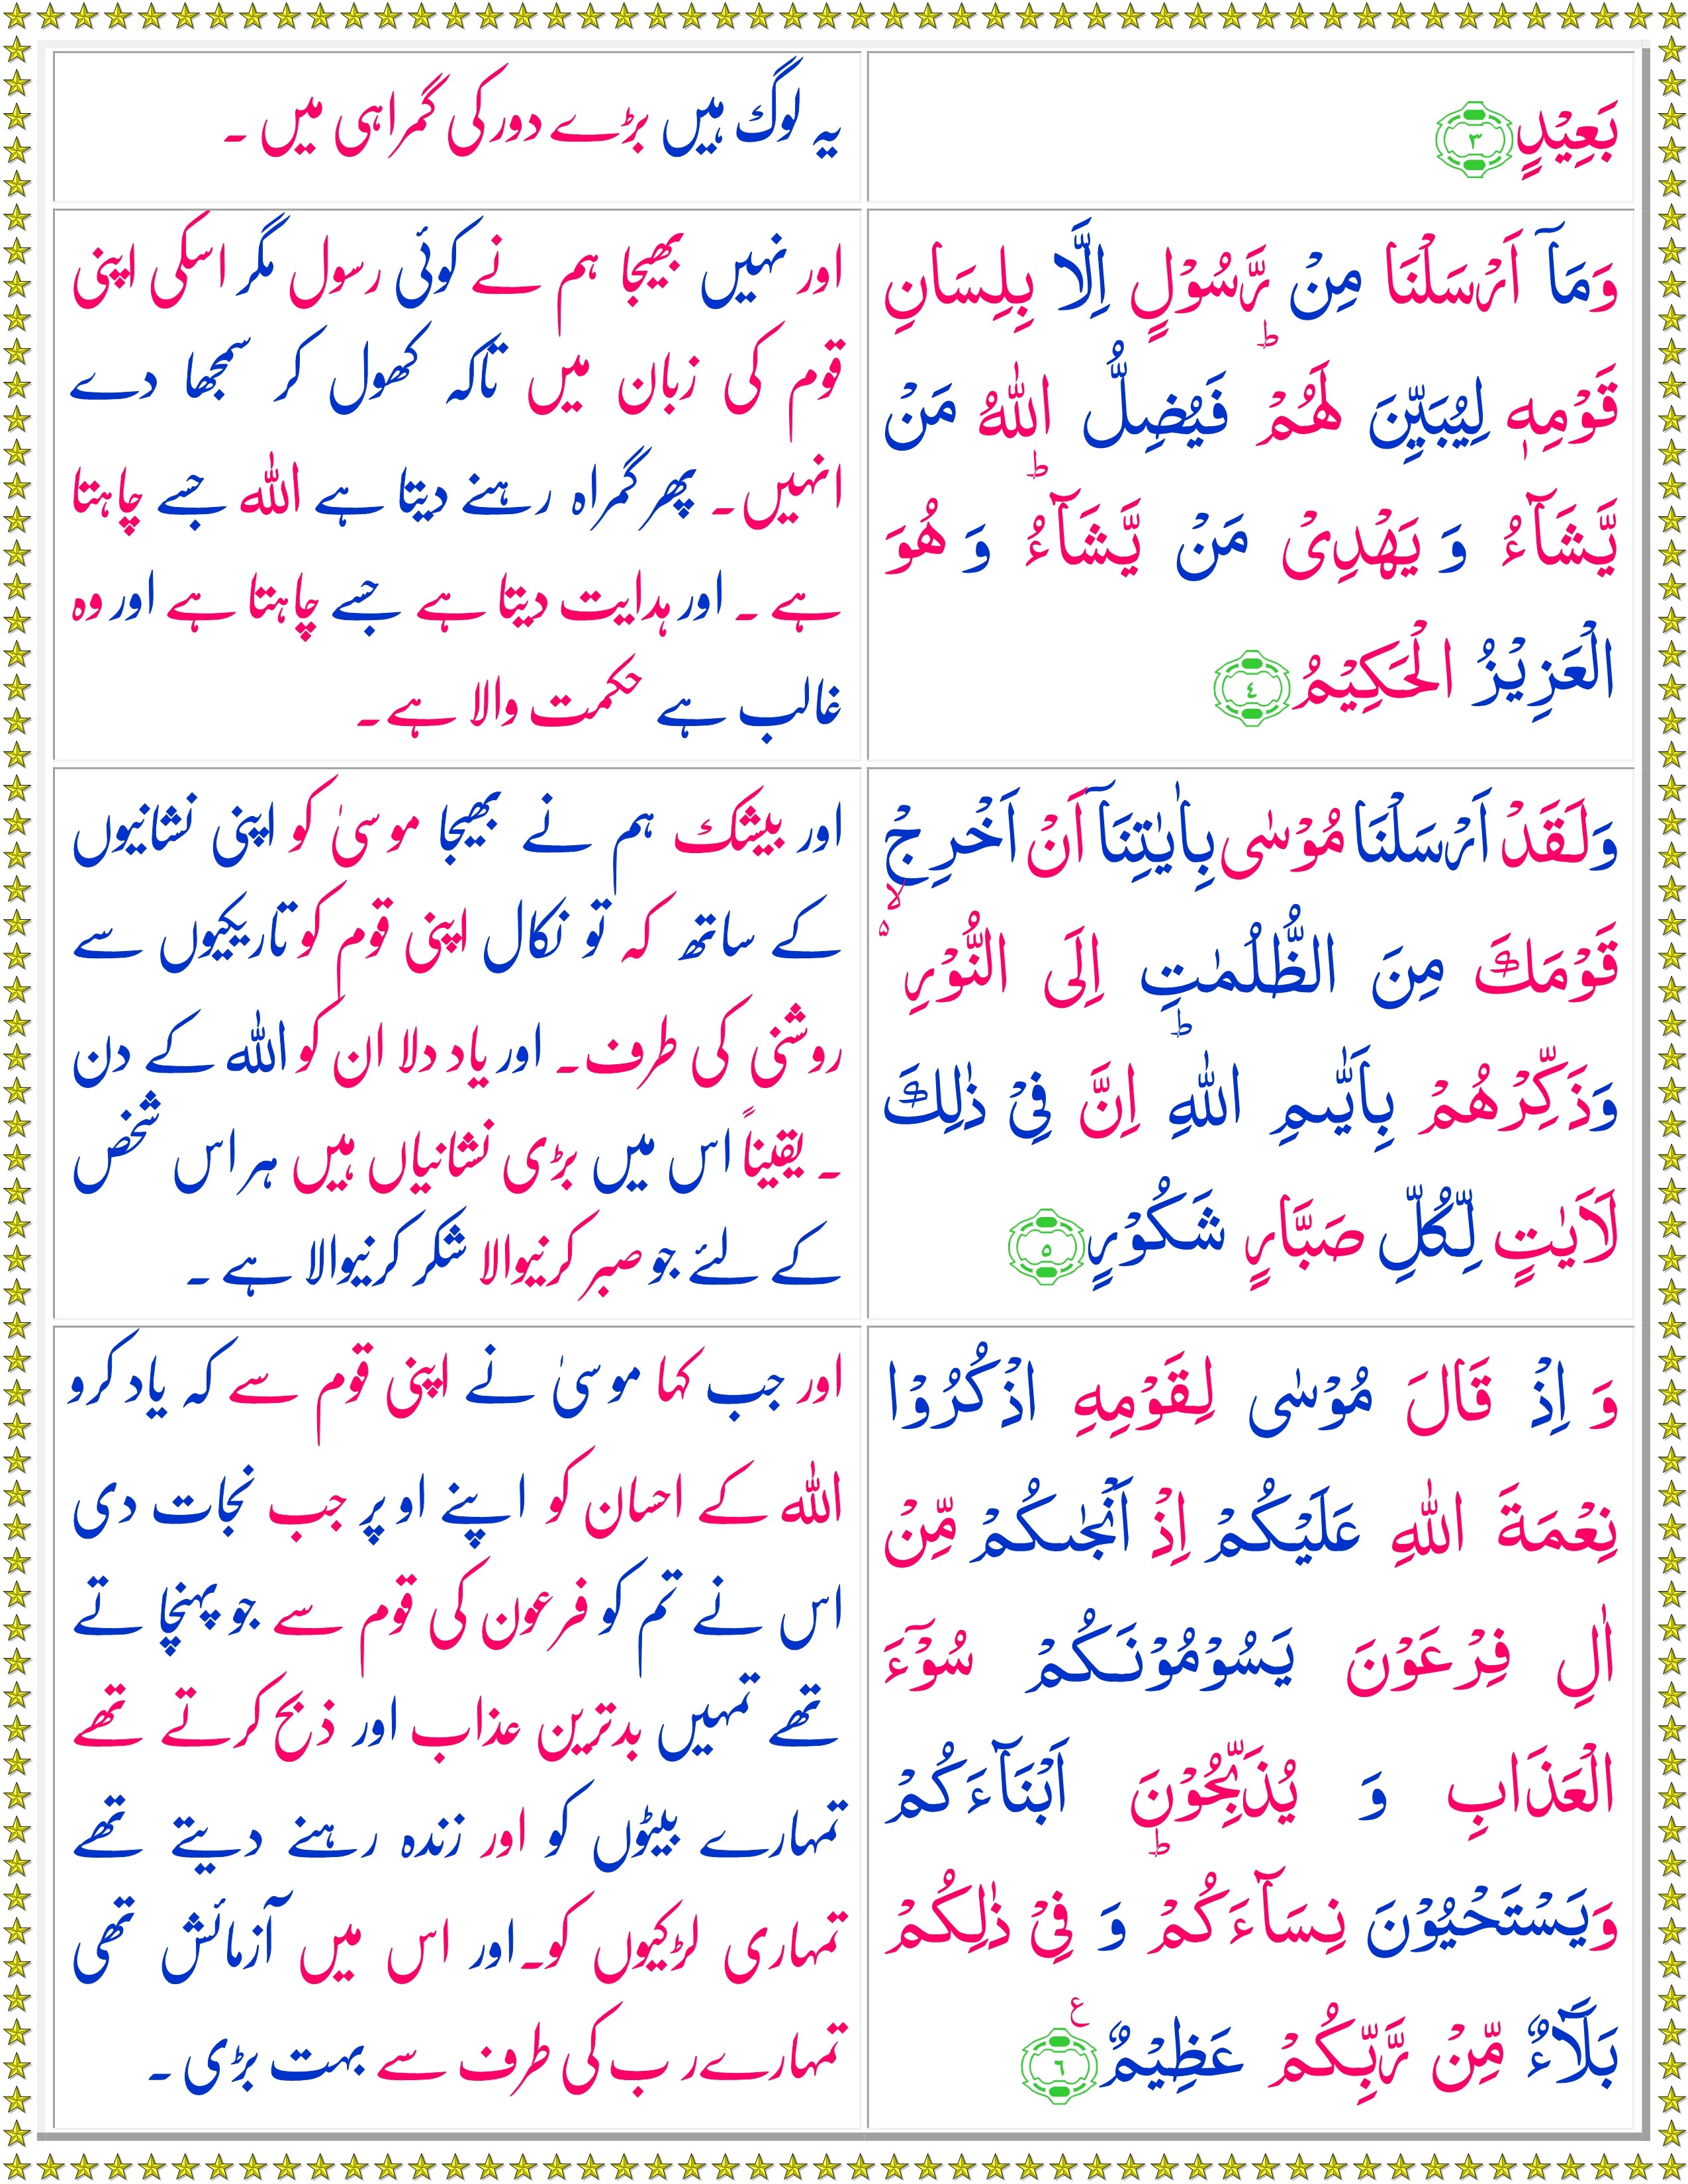 بَعِيْدٍ ٣
یہ لوگ ہیں بڑے دور کی گمراہی میں ۔
وَمَآ اَرْسَلْنَا مِنْ رَّسُوْلٍ اِلَّا بِلِسَانِ
قَوْمِهٖ لِيُبَيِّنَ لَهُمْ ؕ فَيُضِلُّ اللّٰهُ مَنْ
يَّشَآءُ وَ يَهْدِىْ مَنْ يَّشَآءُ ؕ وَ هُوَ
الْعَزِيْزُ الْحَكِيْمُ ٤
اور نہیں بھیجا ہم نے کوئی رسول مگر اسکی اپنی
قوم کی زبان میں تاکہ کھول کر سمجھا دے
انہیں۔ پھر گمراہ رہنے دیتا ہے اللہ جسے چاہتا
ہے ۔ اور ہدایت دیتا ہے جسے چاہتا ہے اور وہ
غالب ہے حکمت والا ہے۔
وَلَقَدْ اَرْسَلْنَا مُوْسٰى بِاٰيٰتِنَآ اَنْ اَخْرِجْ
قَوْمَكَ مِنَ الظُّلُمٰتِ اِلَى النُّوْرِ ۙ۬
وَذَكِّرْهُمْ بِاَيّٰٮمِ اللّٰهِ ؕ اِنَّ فِىْ ذٰلِكَ
لَاَيٰتٍ لِّكُلِّ صَبَّارٍ شَكُوْرٍ ٥
اور بیشک ہم نے بھیجا موسیٰ کو اپنی نشانیوں
کے ساتھ کہ تو نکال اپنی قوم کو تاریکیوں سے
روشنی کی طرف۔ اور یاد دلا ان کو اللہ کے دن
۔ یقیناً اس میں بڑی نشانیاں ہیں ہر اس شخص
کے لئے جو صبر کرنیوالا شکر کرنیوالا ہے ۔
وَ اِذْ قَالَ مُوْسٰى لِقَوْمِهِ اذْكُرُوْا
نِعْمَةَ اللّٰهِ عَلَيْكُمْ اِذْ اَنْجٰٮكُمْ مِّنْ
اٰلِ فِرْعَوْنَ يَسُوْمُوْنَكُمْ سُوْٓءَ
الْعَذَابِ وَ يُذَبِّحُوْنَ اَبْنَآءَكُمْ
وَيَسْتَحْيُوْنَ نِسَآءَكُمْ ؕ وَ فِىْ ذٰلِكُمْ
بَلَاۤءٌ مِّنْ رَّبِّكُمْ عَظِيْمٌ ٦ ع
اور جب کہا موسیٰ نے اپنی قوم سے کہ یاد کرو
اللہ کے احسان کو اپنے اوپر جب نجات دی
اس نے تم کو فرعون کی قوم سے جو پہنچاتے
تھے تمہیں بدترین عذاب اور ذبح کرتے تھے
تمہارے بیٹوں کو اور زندہ رہنے دیتے تھے
تمہاری لڑکیوں کو۔ اور اس میں آزمائش تھی
تمہارے رب کی طرف سے بہت بڑی ۔